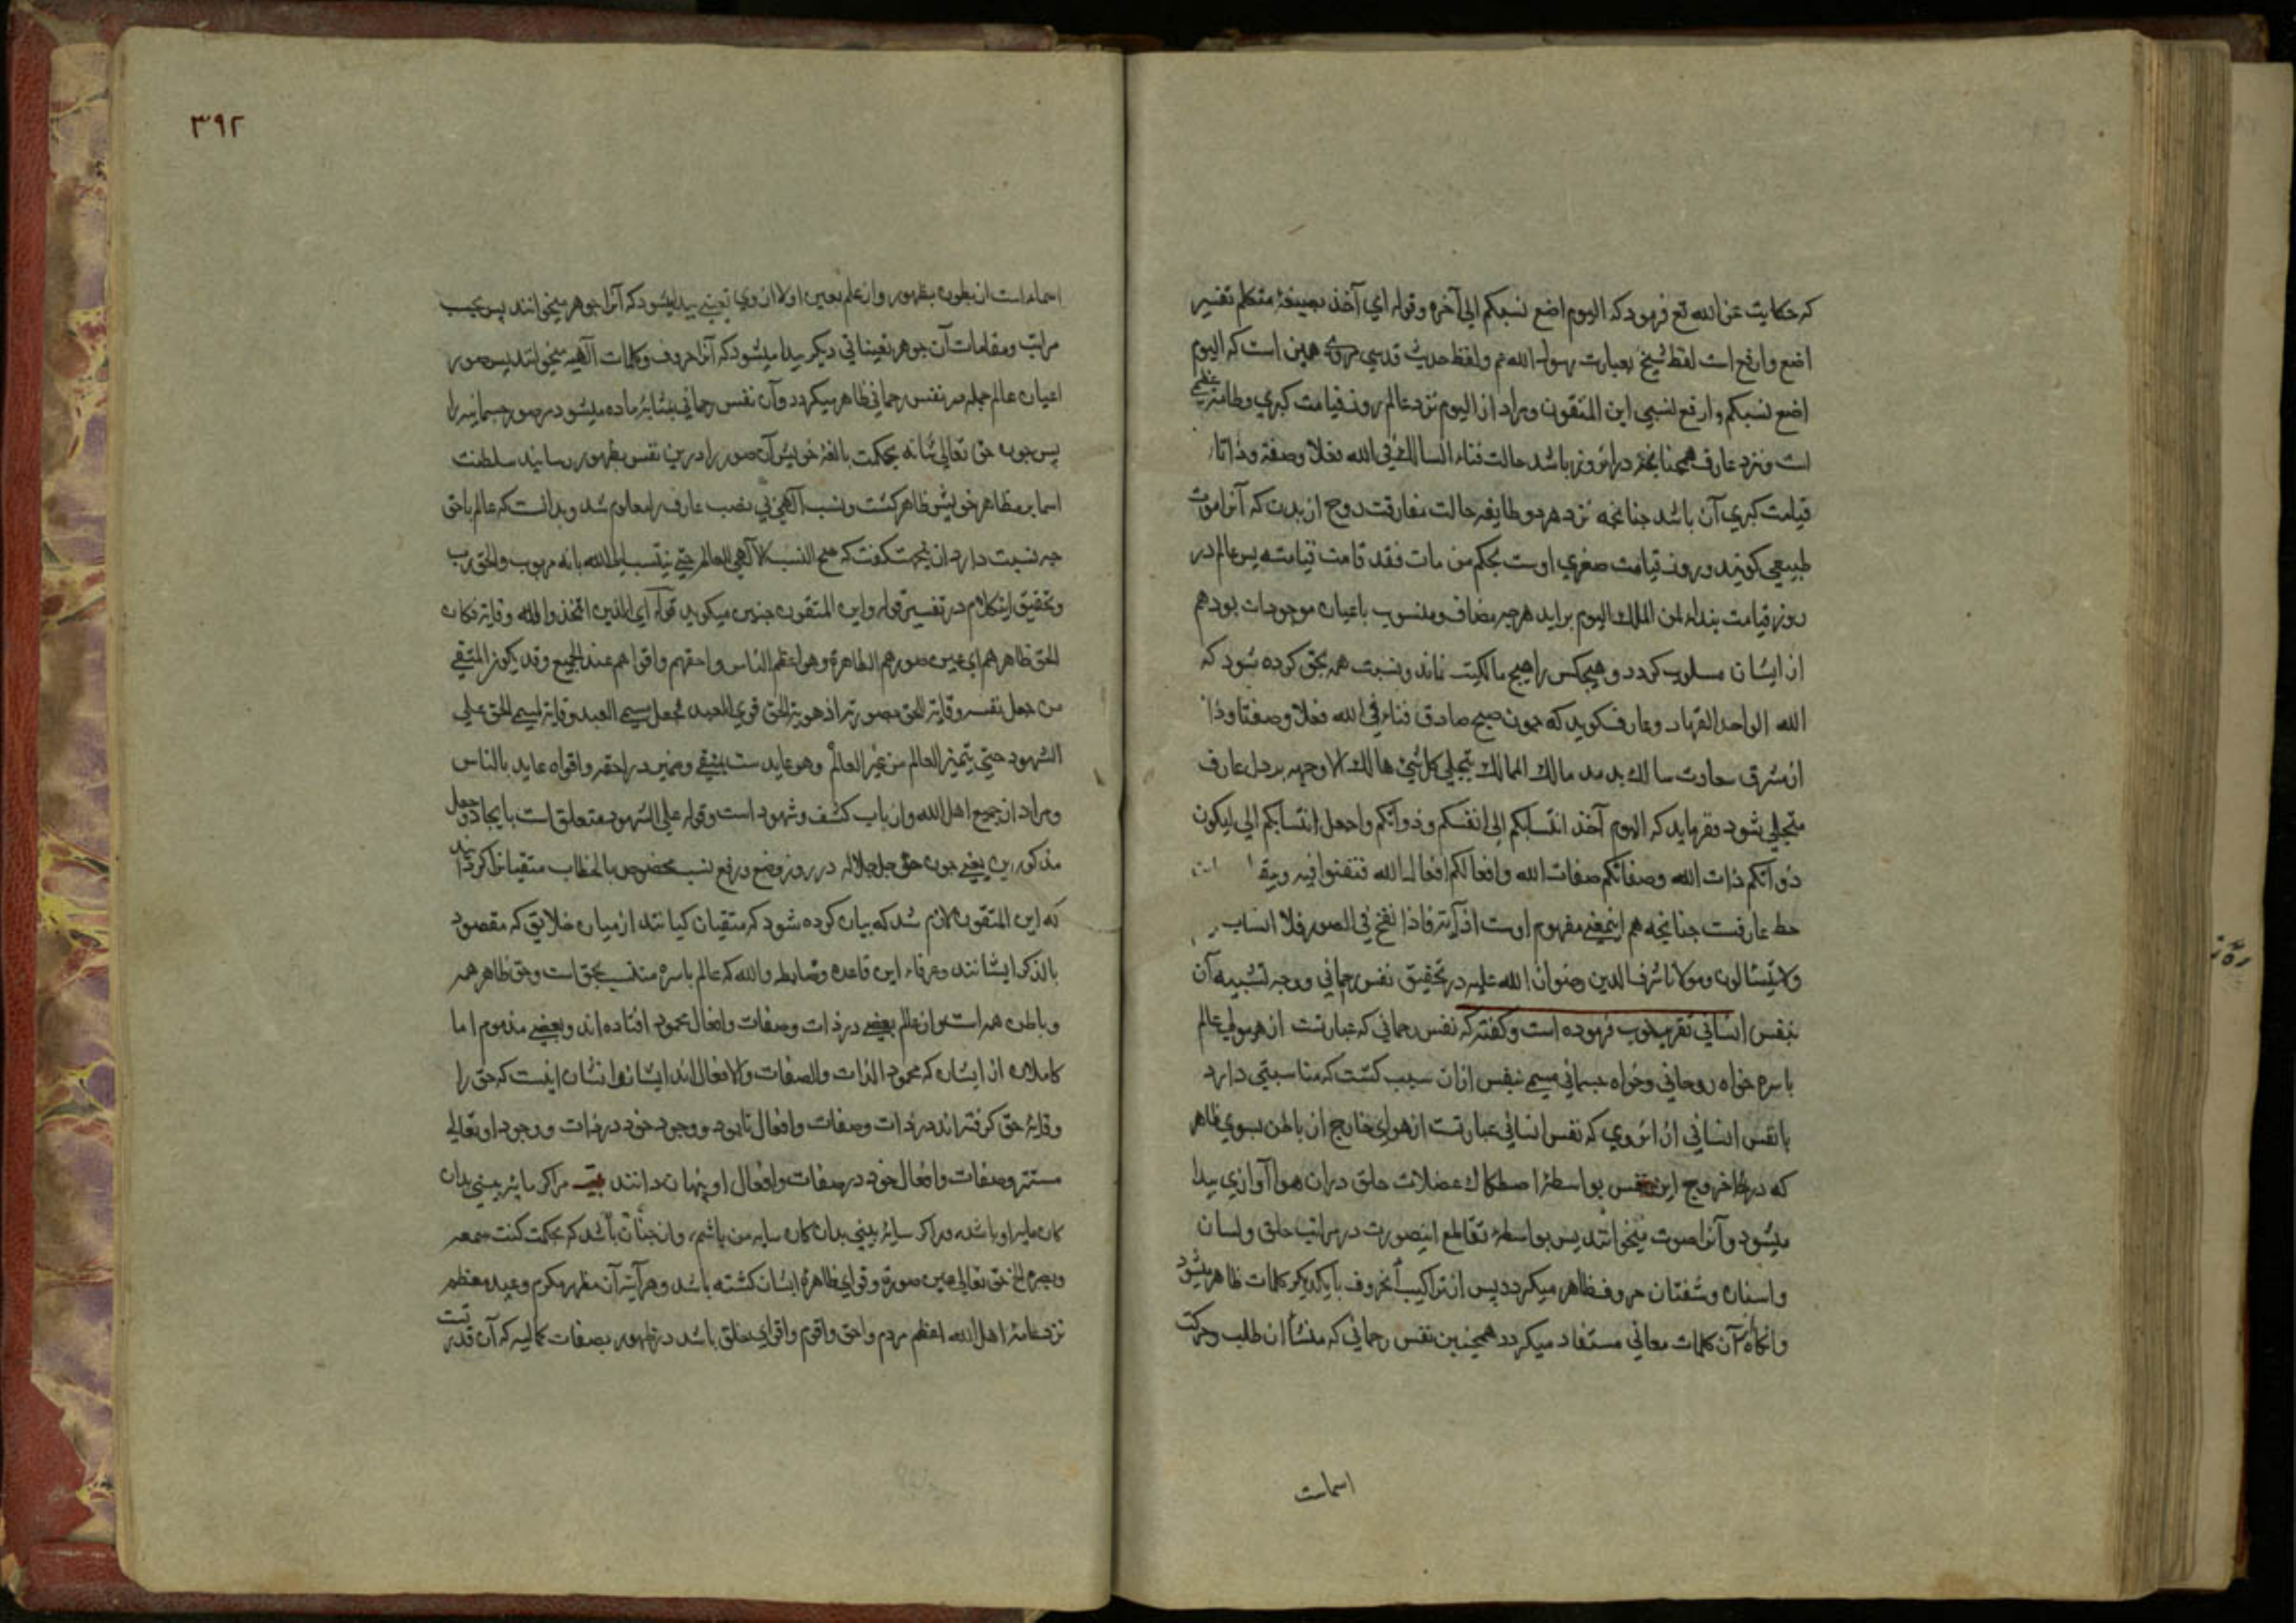 که حکایت عن الله تع فرمود که الیوم اضع نسبکم الی آخره وقوله ای آخذ بصیغهٔ متکلم تفسیر
اضع وارفع است لفظ شیخ بعبارت رسول الله عم ولفظ حدیث قدسی مروی همین است که الیوم
اضع نسبکم وارفع نسبی این المتقون ومراد از الیوم نزد عالم روز قیامت کبری وطامهٔ عظمی
است ونزد عارف همچنانکه در امروز باشد حالت فناء السالک فی الله فعلا وصفة وذاتا
قیامت کبری آن باشد چنانچه نزد هر دو طایفه حالت مفارقت روح از بدن که آنرا موت
طبیعی گویند وروز قیامت صغری اوست بحکم من مات فقد قامت قیامته پس عالم در
روز قیامت بنداء لمن الملک الیوم براید هرچه مضاف ومنسوب باعیان موجودات بود هم
از ایشان مسلوب گردد وهیچکس را هیچ مالکیت نماند ونسبت همه بحق کرده شود که
الله الواحد القهار وعارف گوید که چون صبح صادق فناء فی الله فعلا وصفتا وذا
از مشرق سعادت سالک بدمد مالک الممالک بتجلی کل شیء هالک الا وجهه بر دل عارف
متجلی شود وفرماید که الیوم آخذ انتسابکم الی انفسکم وذواتکم واجعل انتسابکم الی لیکون
ذواتکم ذات الله وصفاتکم صفات الله وافعالکم افعال الله فتفنوا فیه
حظ عارفست چنانچه هم اینمعنی مفهوم اوست از آیة فاذا نفخ فی الصور فلا انساب
ولا یتسالون ومولانا شرف الدین رضوان الله علیه در تحقیق نفس رحمانی ووجه تشبیه آن
بنفس انسانی تقریر خوب فرموده است وگفته که نفس رحمانی که عبارتست از هیولی عالم
باسره خواه روحانی وخواه جسمانی مسمی بنفس ازان سبب گشت که مناسبتی دارد
با نفس انسانی از انروی که نفس انسانی عبارتست از هوای خارج از باطن بسوی ظاهر
که در خروج این نفس بواسطهٔ اصطکاک عضلات حلق دران هوا آوازی پیدا
میشود وآنرا صوت میخوانند پس بواسطهٔ تقاطع اینصورت در مراتب حلق ولسان
واسنان وشفتان حروف ظاهر میگردد پس از تراکیب آنحروف با یکدیگر کلمات ظاهر میشود
وانگاه از آن کلمات معانی مستفاد میگردد همچنین نفس رحمانی که منشأ آن طلب وحرکت
اسماست
۳۹۲
اسماست از بطون بظهور واز علم بعین اولا ازوی تعینی پیدا میشود که آنرا جوهر میخوانند پس بحسب
مراتب ومقامات آن جوهر تعیناتی دیگر پیدا میشود که آنرا حروف وکلمات آلهیه میخوانند پس صور
اعیان عالم جمله در نفس رحمانی ظاهر میگردد وآن نفس رحمانی بمثابهٔ ماده میشود در صور جسمانیه را
پس چون حق تعالی شانه بحکمت بالغهٔ خویش آن صور را درین نفس بظهور رسانید سلطنت
اسما بر مظاهر خویش ظاهر گشت ونسب آلهی بی نصب عارف را معلوم شد وبدانست که عالم باحق
چه نسبت دارد ازین جهت گفت که صح النسب الآلهی للعالم حتی ینتسب الی الله بانه مربوب والحق رب
وتحقیق اینکلام در تفسیر قوله واین المتقون چنین میگوید قوله ای الذین اتخذوا الله وقایة فکان
الحق ظاهرهم ای عین صورهم الظاهرة وهو اعظم الناس واحقهم واقواهم عند الجمیع وقد یکون المتقی
من جعل نفسه وقایة للحق بصورته اذ هویة الحق قوی العبد فجعل مسمی العبد وقایة لمسمی الحق علی
الشهود حتی یتمیز العالم من غیر العالم وهو عایدست بمتقی وضمیر در احقه واقواه عاید بالناس
ومراد از جمیع اهل الله وارباب کشف وشهود است وقوله علی الشهود متعلق است بایجاد وجعل
مذکورین یعنی چون حق جل جلاله در روز وضع ورفع نسب مخصوص بالخطاب متقیانرا گردانید
که این المتقون لازم شد که بیان کرده شود که متقیان کیانند از میان خلایق که مقصود
بالذکر ایشانند وعرفاء این قاعده وضابطه والله که عالم باسره منتسب بحق است وحق ظاهر همه
وباطن همه است واز عالم بعضی در ذات وصفات وافعال محمود افتاده اند وبعضی مذموم اما
کاملان از ایشان که محمود الذات والصفات والافعال اند ایشانرا نشان اینست که حق را
وقایهٔ حق گرفته اند در ذات وصفات وافعال تا بود ووجود خود در ذات ووجود او تعالی
مستتر وصفات وافعال خود در صفات وافعال او پنهان دانند بیت مراگر مایه بینی بدان
کان مایه او باشد، مراگر سایه بینی بدان کان سایه من باشم، وان چنان باشد که بحکمت کنت سمعه
وبصره الخ حق تعالی عین صورة وقوای ظاهرهٔ ایشان گشته باشد وهرآینه آن مظهر مکرم وعبد معظم
نزد عامهٔ اهل الله اعظم مردم واحق واقوم واقوای خلق باشد در ظهور بصفات کمالیه که آن قدرتست